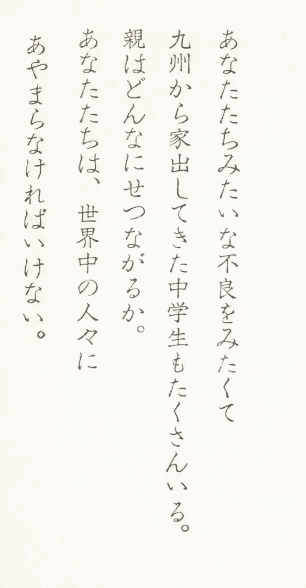 あなたたちみたいな不良をみたくて
九州から家出してきた中学生もたくさんいる。
親はどんなにせつながるか。
あなたたちは、世界中の人々に
あやまらなければいけない。